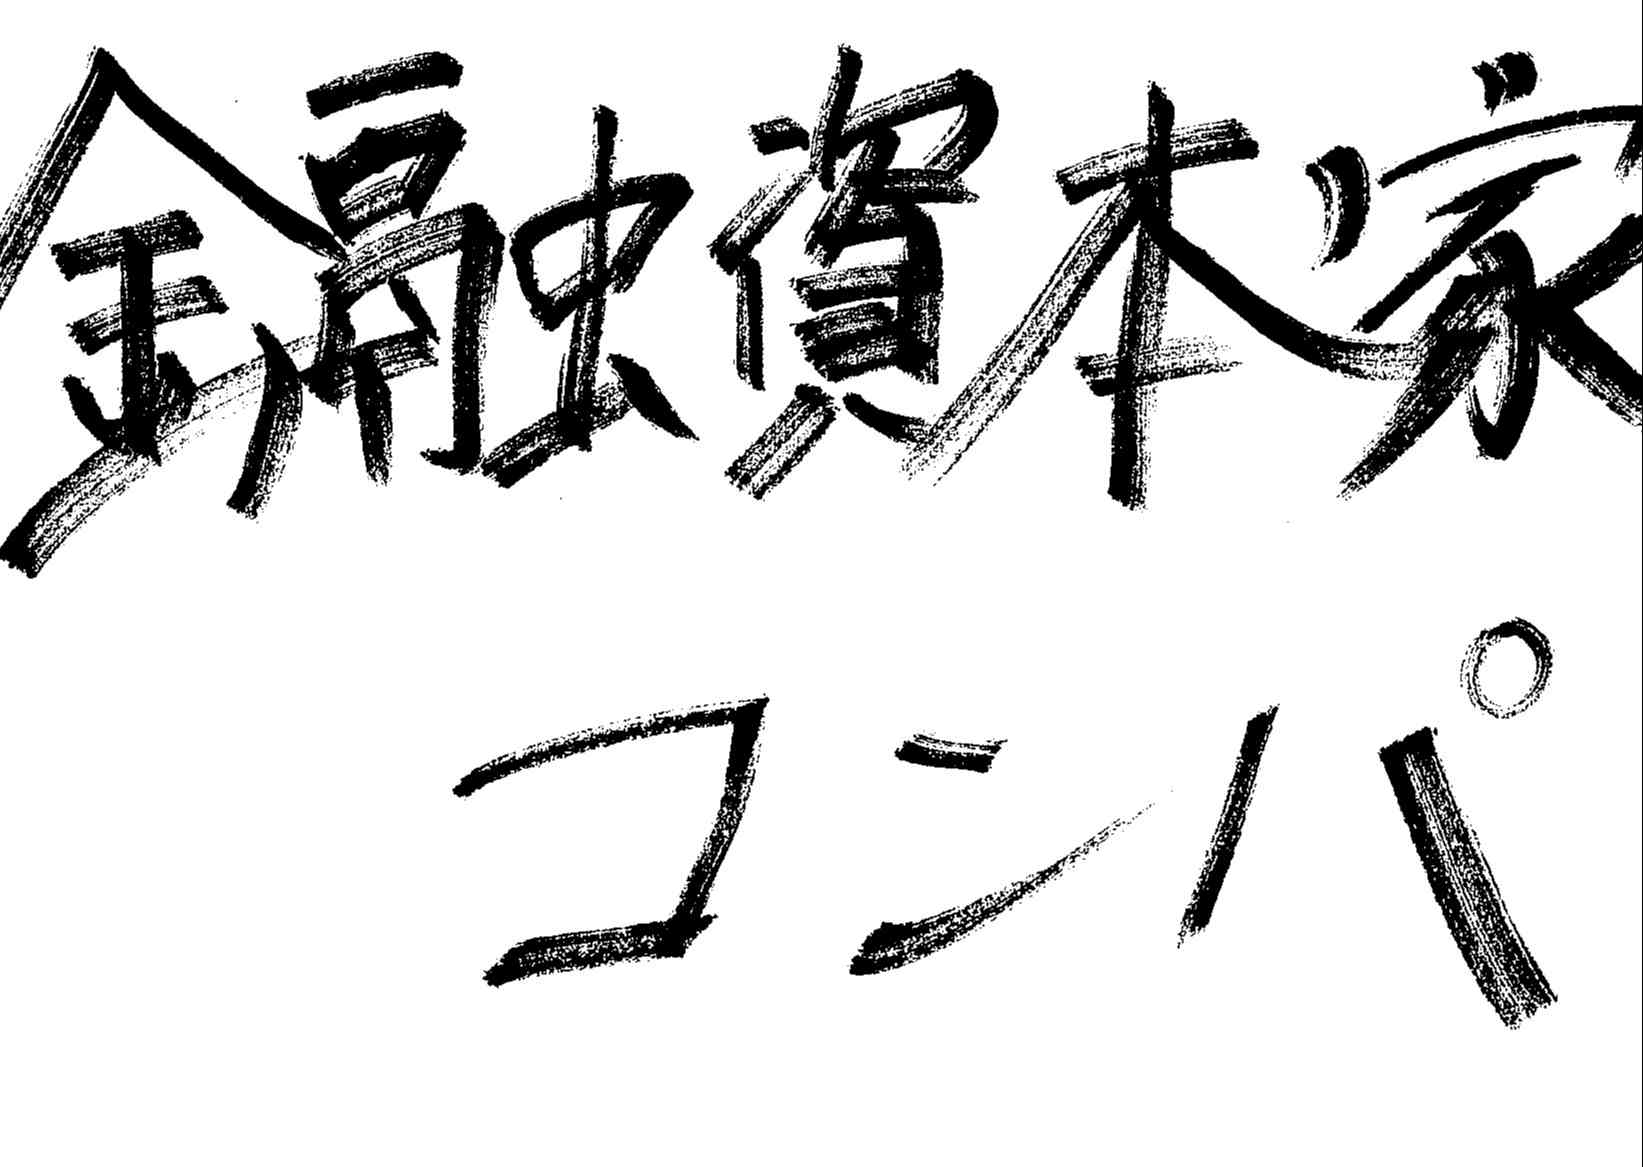 金融資本家
コンパ